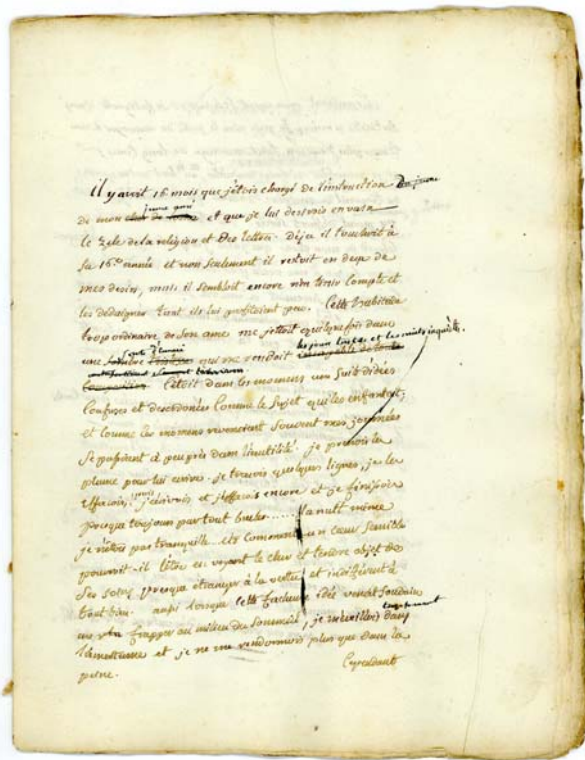 il y avoit 18 mois que j'étois chargé de l'instruction Du jeune
jeune ami
de mon et que je lui desirois en vain
le zele de la religion et des lettres. Deja il touchoit à
sa 16.e année et non seulement il restoit en deça de
mes desirs, mais il sembloit encore n'en tenir compte et
les dedaigner tant ils lui profitoient peu. Cette habitude
trop ordinaire de son ame me jettoit quelque fois dans
les jours tristes et les nuits inquiètes.
sorte d'ennui
une sombre qui me rendoit incapable de toute
C'étoit dans les momens une suite d'idées
confuses et desordonées comme le sujet qui les enfantoit;
et comme ces momens revenoient souvent mes journées
se passoient à peu près dans l'inutilité. je prenois la
plume pour lui ecrire. je traçois quelques lignes, je les
effacois, j'ecrivois et j'effacois encore et je finissois
presque toujours par tout bruler...... la nuit même
je n'étois pas tranquille. et comment un cœur sensible
pourroit-il l'être en voyant le cher et tendre objet de
ses soins presque etranger à la vertu et indifférent à
tout bien. aussi lorsque cette facheuse idée venoit soudain
me frapper au milieu du sommeil, je m'éveillois dans
l'amertume et je ne me rendormois plus que dans la
peine.
Cependant